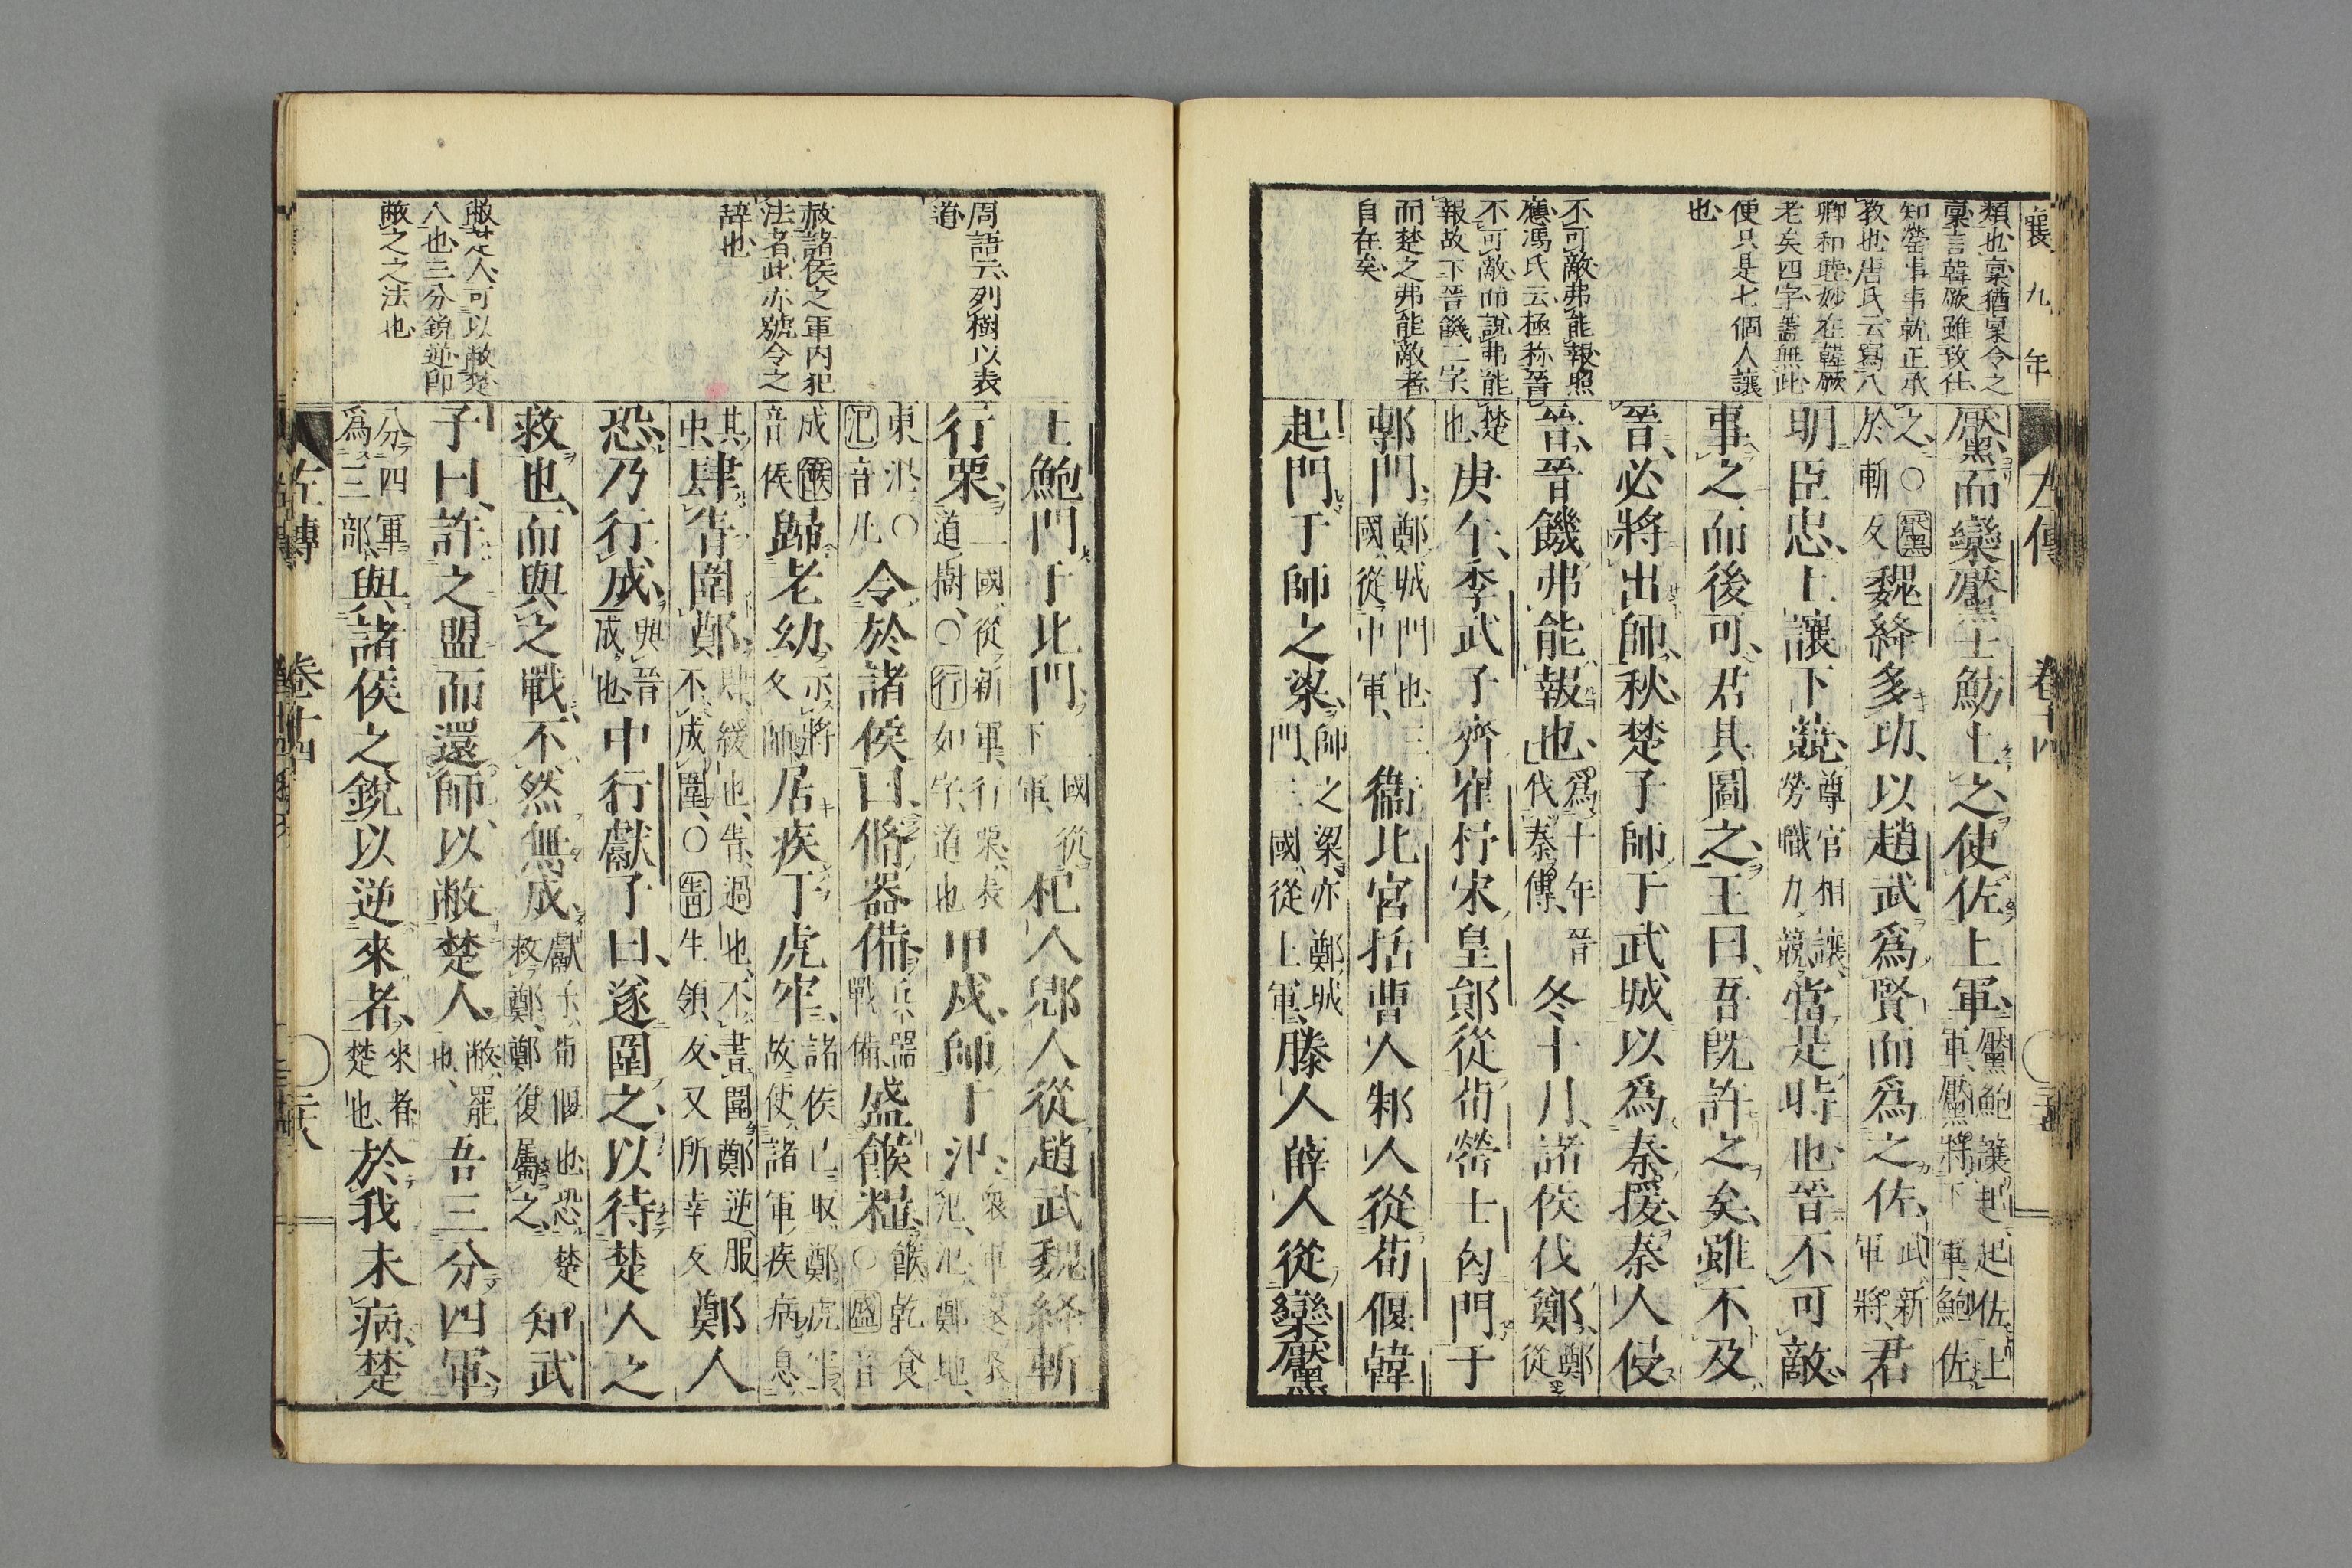 襄九年
類也稾猶稟令之
稾言韓厥雖致仕
知罃事事就正承
教也唐氏云寫八
卿和睦妙在韓厥
老矣四字蓋無此
便只是七個人讓
也
不可敵弗能報照
應馮氏云極称晋
不可敵而説弗能
報故下晉饑二字
而楚之弗能敵者
自在矣
左傳 卷十四
黶而欒黶士魴上之使佐上軍黶魴讓起起佐上軍黶將下軍魴佐
之○黶於斬反魏絳多功以趙武爲賢而爲之佐武新軍將君
明臣忠上讓下競尊官相讓勞職力競當是時也晉不可敵
事之而後可君其圖之王曰吾既許之矣雖不及
晉必將出師秋楚子師于武城以爲秦援秦人侵
晉晉饑弗能報也爲十年晉伐秦傳冬十月諸侯伐鄭鄭從
楚也庚午季武子齊崔杼宋皇鄖從荀罃士匄門于
鄟門鄭城門也三國從中軍衞北宮括曹人邾人從荀偃韓
起門于師之梁師之梁亦鄭城門三國從上軍滕人薛人從欒黶
周語云列樹以表
道
赦諸侯之軍内犯
法者此亦號令之
辞也
敝楚人可以敝楚
人也三分銳逆卽
敝之之法也
士魴門于北門二國從下軍杞人郳人從趙武魏絳斬
行栗二國從新軍行栗表道樹○行如字道也甲戌師于氾衆軍還聚氾氾鄭地
東氾○氾音凡令於諸侯曰脩器備兵器戰備盛餱糧餱乾食○盛音
成餱音侯歸老幼示將久師居疾于虎牢諸侯已取鄭虎牢故使諸軍疾病息
其中肆眚圍鄭肆緩也眚過也不書圍鄭逆服不成圍○眚生領反又所幸反鄭人
恐乃行成與晉成也中行獻子曰遂圍之以待楚人之
救也而與之戰不然無成獻子荀偃也恐楚救鄭鄭復屬之知武
子曰許之盟而還師以敝楚人敝罷也吾三分四軍
分四軍爲三部與諸侯之銳以逆來者來者楚也於我未病楚
左傳 卷十四 二十八